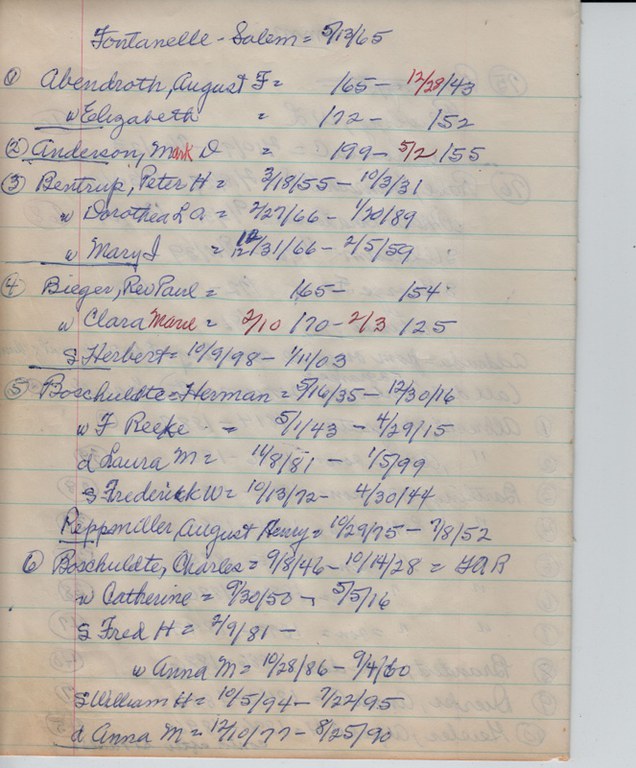 Fontanelle - Salem = 5/13/65
① Abendroth, August F = /65 - 12/29/43
w Elizabeth = /72 - /52
② Anderson, Mark D = /99 - 5/2/55
③ Bentrup, Peter H = 3/18/55 - 10/3/31
w Dorothea L A. = 2/27/66 - 1/20/89
w Mary I = 12/31/66 - 2/5/59
④ Bieger, Rev Paul = /65 - /54
w Clara Marie = 2/10 /70 - 2/3 /25
S Herbert = 10/9/98 - 1/11/03
⑤ Boschuldte = Herman = 5/16/35 - 12/30/16
w F Reeke = 5/1/43 - 4/29/15
d Laura M = 11/8/81 - 1/5/99
S Frederick W = 10/13/72 - 4/30/44
Reppmiller, August Henry = 10/29/75 - 7/8/52
⑥ Boschuldte, Charles = 9/8/46 - 10/14/28 = GAR
w Catherine = 9/30/50 - 5/5/16
S Fred H = 2/9/81 -
w Anna M = 10/28/86 - 9/4/60
S William H = 10/5/94 - 7/22/95
d Anna M = 12/10/77 - 8/25/90